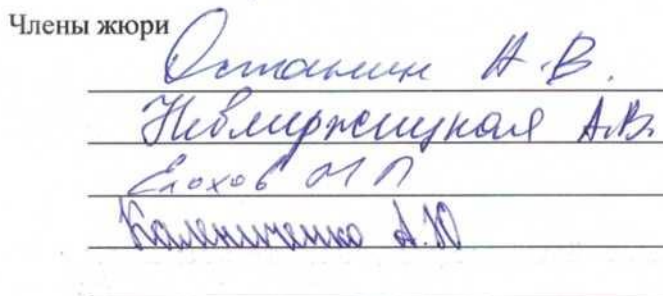 Члены жюри
Останин А.В.
Невмержицкая А.В.
Елохов М П
Калениченко А.Ю